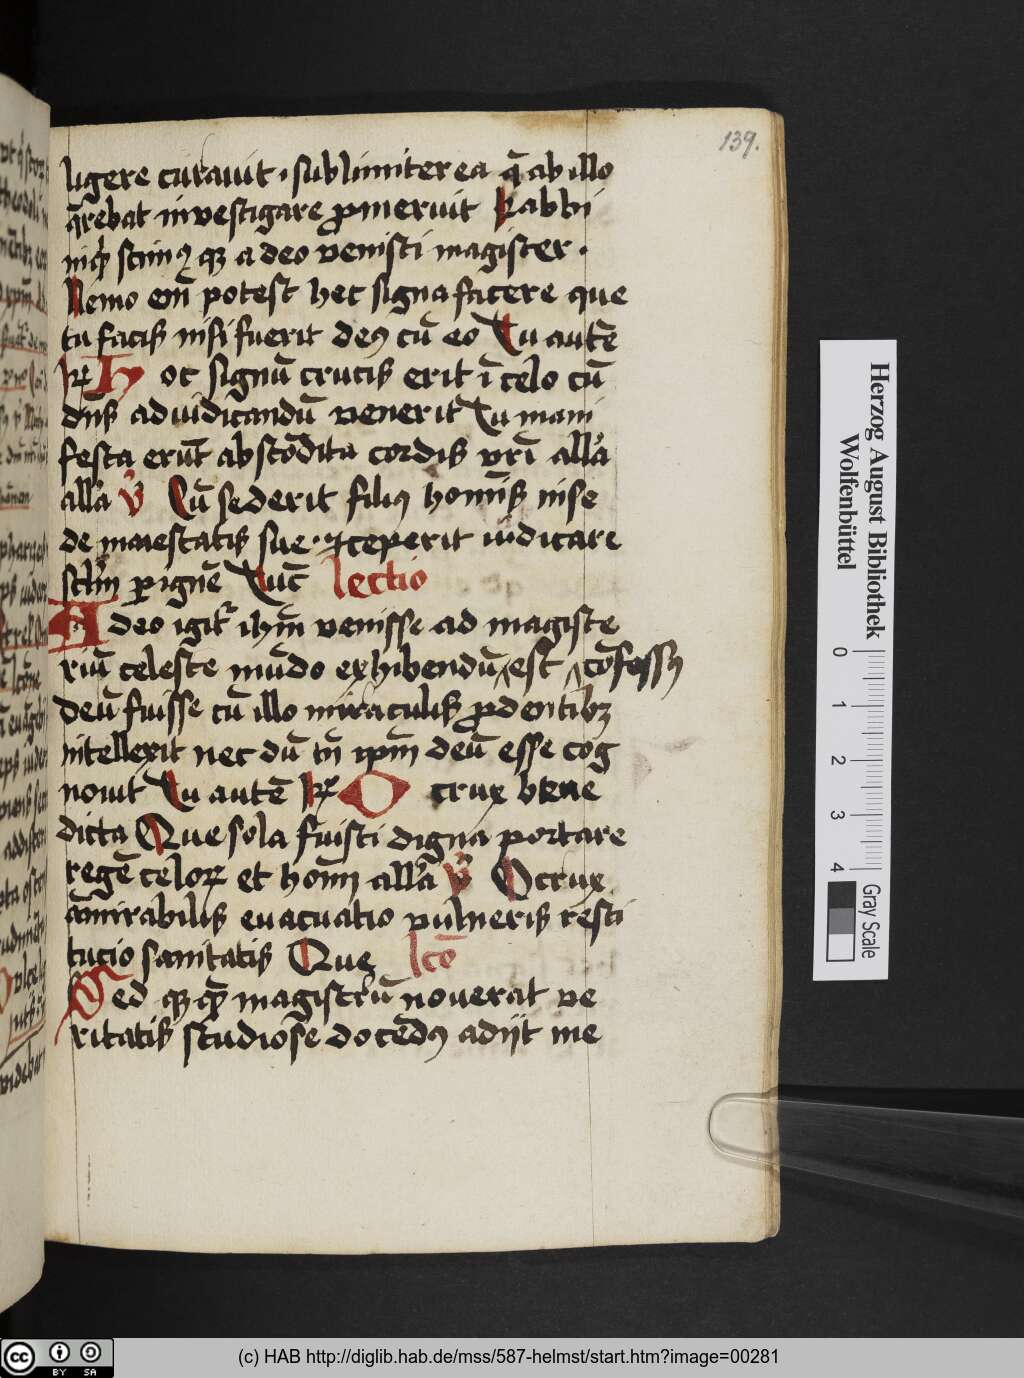 139.
ligere curauit · sublimiter ea q̄ ab illo
q̄rebat inuestigare ꝓmeruit Rabbi
inq̇ scimꝰ qꝫ a deo venisti magister ·
Nemo em̄ potest hec signa facere que
tu facis nisi fuerit deꝰ cū eo Tu autē
R̷ Hoc signū crucis erit ī celo cū
dn̄s ad iudicandū venerit Tu mani
festa erūt abscōdita cordis vr̄i all̓a
all̓a v̓ Cū sederit filiꝰ homīs in se
de maiestatis sue · ⁊ ceperit iudicare
sclm̄ ꝑ ignē Tuc̄ lectio
A deo igit᷑ ihm̄ venisse ad magiste
riū celeste mūdo exhibendū est cōfessꝰ
deū fuisse cū illo miraculis ꝓdentibꝫ
intellexit nec dū tn̄ ip̄m deū esse cog
nouit Tu autē R̷ O crux bene
dicta Que sola fuisti digna portare
regē celoꝝ et hom̄ all̓a v̓ O crux
am̄irabilis euacuatio vulneris resti
tucio sanitatis Que lcō
Sed qꝫ qm̄ magistrū nouerat ve
ritatis studiose docēdꝰ adijt me
Herzog August Bibliothek
Wolfenbüttel
0 1 2 3 4
Gray Scale
cc BY SA
(c) HAB http://diglib.hab.de/mss/587-helmst/start.htm?image=00281